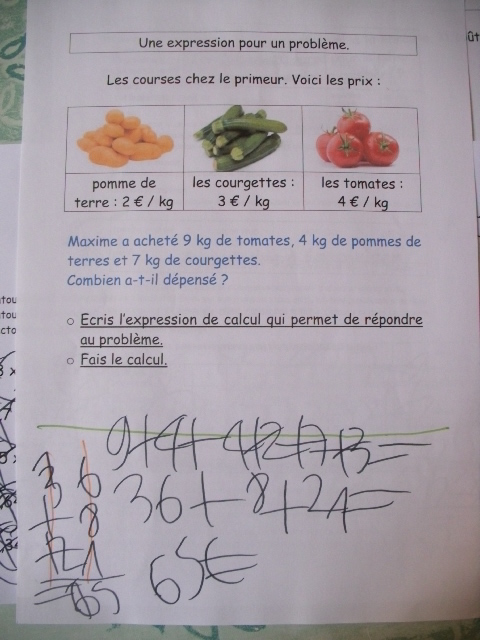 Une expression pour un problème.
Les courses chez le primeur. Voici les prix :
pomme de
terre : 2 € / kg
les courgettes :
3 € / kg
les tomates :
4 € / kg
Maxime a acheté 9 kg de tomates, 4 kg de pommes de
terres et 7 kg de courgettes.
Combien a-t-il dépensé ?
○ Ecris l'expression de calcul qui permet de répondre
au problème.
○ Fais le calcul.
9+4+4+2+7+3=
36+8+21=
65€
36
+8
+21
=65